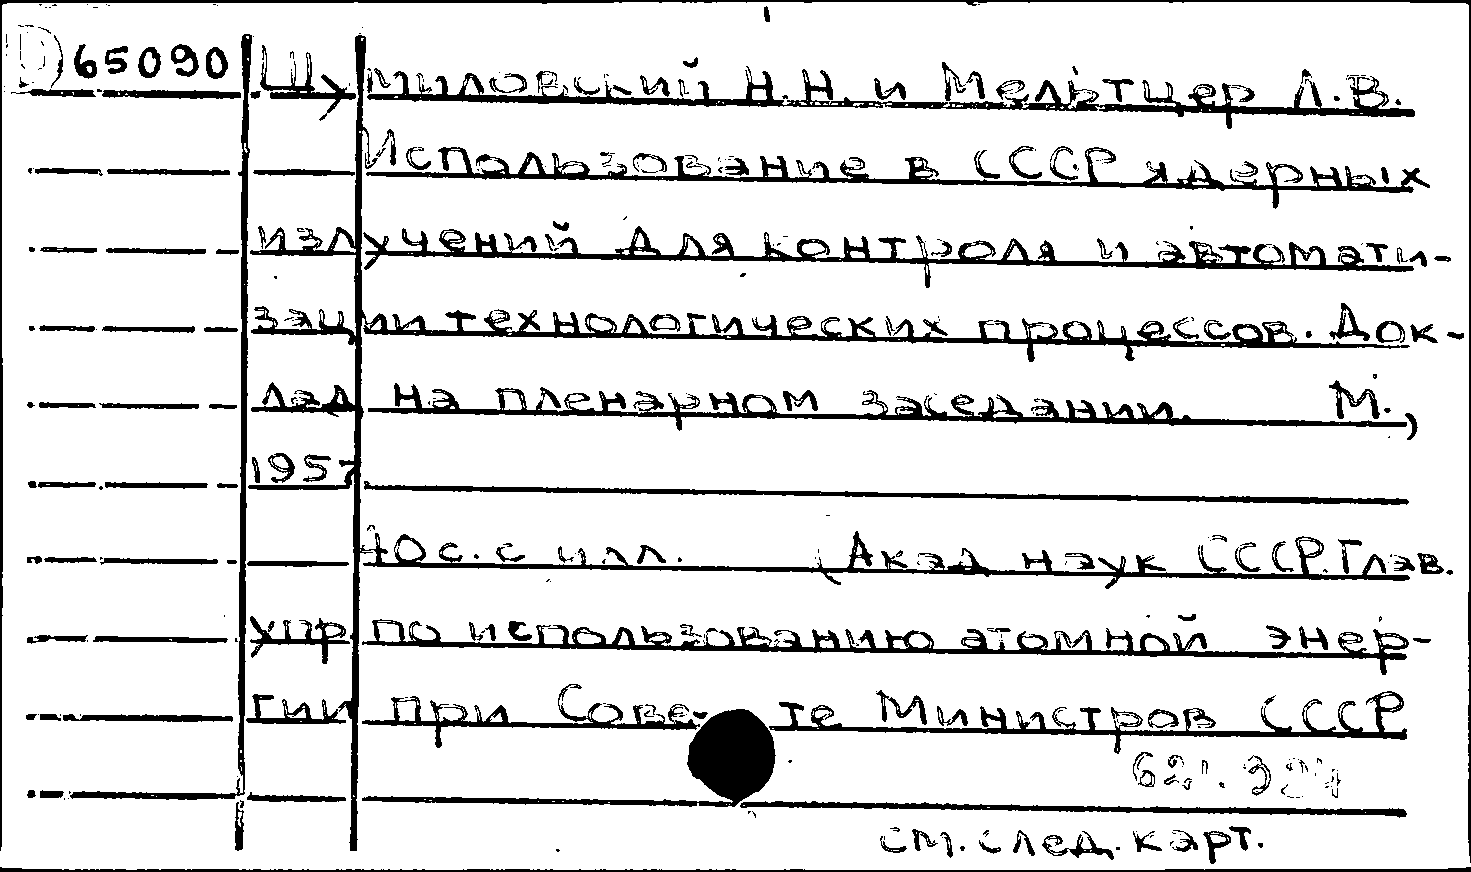 D 65090 Шумиловский Н.Н. и Мельтцер Л.В.
Использование в СССР ядерных
излучений для контроля и автомати-
зации технологических процессов. Док-
лад на пленарном заседании. М.,
1957
40 с. с илл. (Акад наук СССР. Глав.
упр по использованию атомной энер-
гии при Сове-те Министров СССР
см. след. карт.